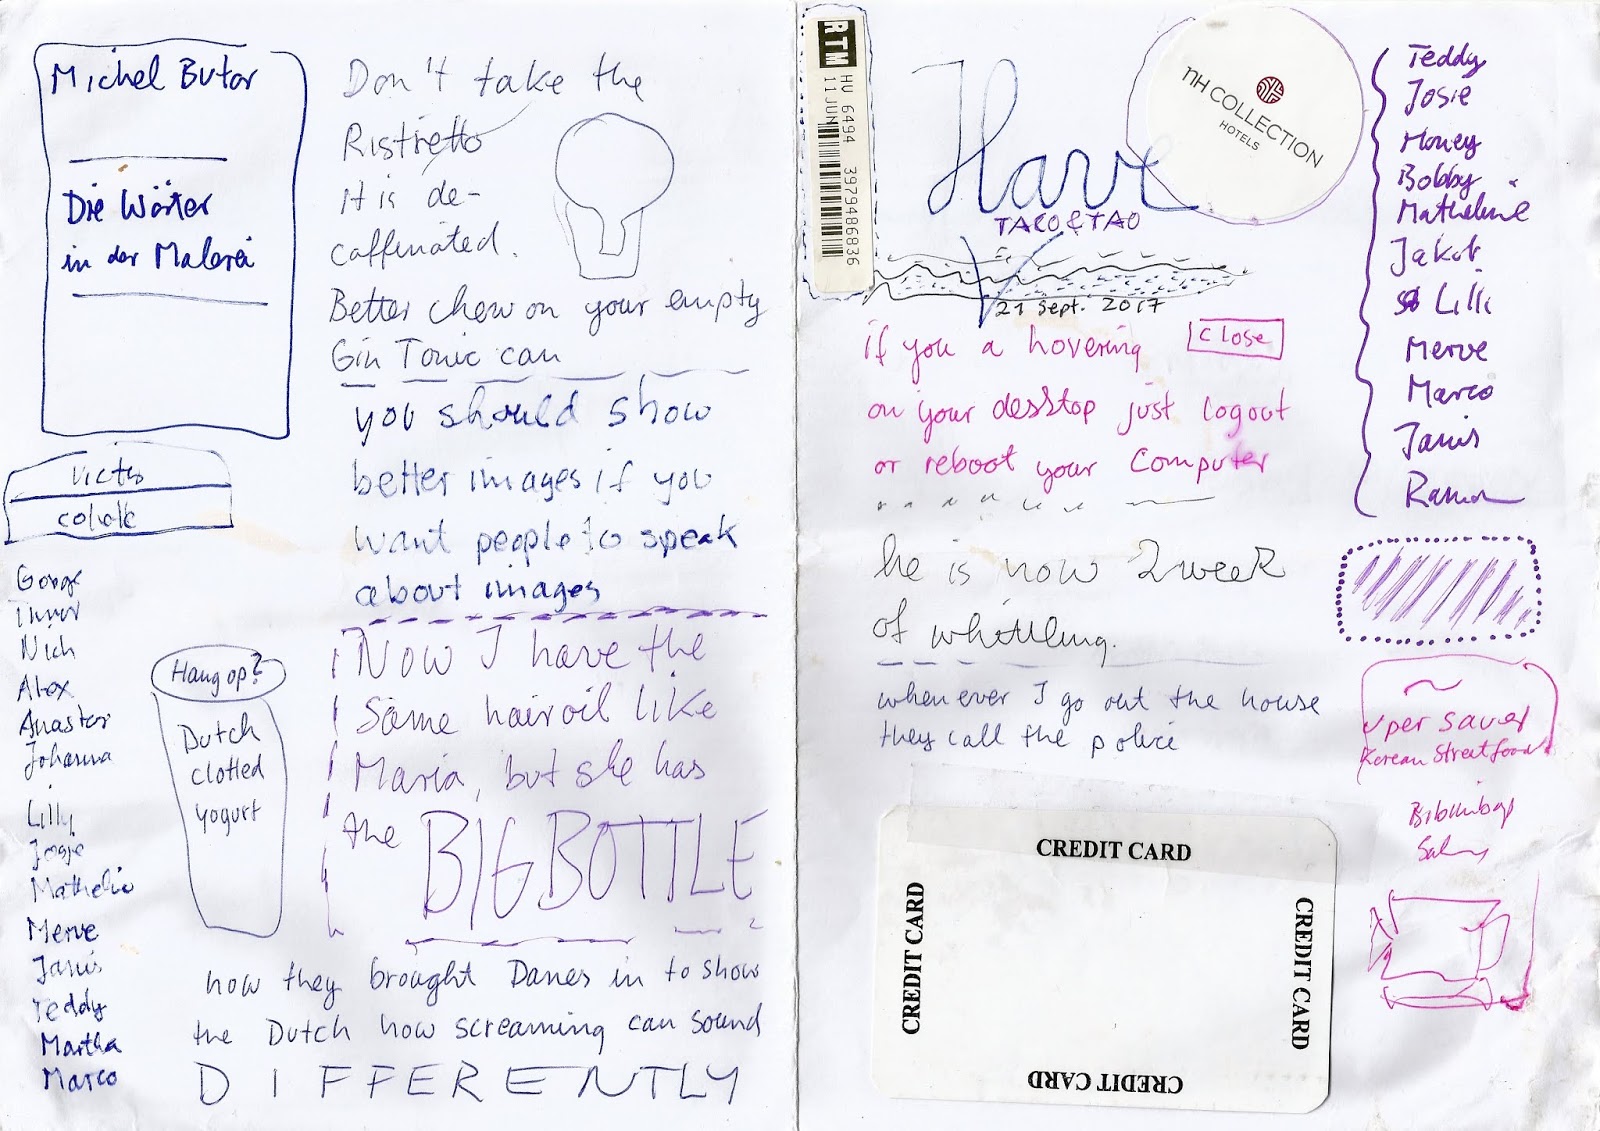 Michel Butor
Die Wörter
in der Malerei
Don't take the
Ristretto
it is de-
caffeinated.
Better chew on your empty
Gin Tonic can
you should show
better images if you
want people to speak
about images
Now I have the
Same hair oil like
Maria, but she has
the BIG BOTTLE
how they brought Danes in to show
the Dutch how screaming can sound
DIFFERENTLY
Nich
Alex
Johanna
Lilly
Merve
Janis
Teddy
Martha
Marco
Hangop?
Dutch
clotted
yogurt
RTM
HV 6494 397948 6836
11 JUN
Have
TACO & TAO
21 sept. 2017
NH COLLECTION
HOTELS
if you a hovering close
on your desktop just logout
or reboot your Computer
he is now 2 week
of whittling.
whenever I go out the house
they call the police
CREDIT CARD
CREDIT CARD
CREDIT CARD
CREDIT CARD
Teddy
Josie
Money
Bobby
Mathelline
Jakob
Lilli
Merve
Marco
Janis
Ramon
Korean Streetfood
Bibimbap